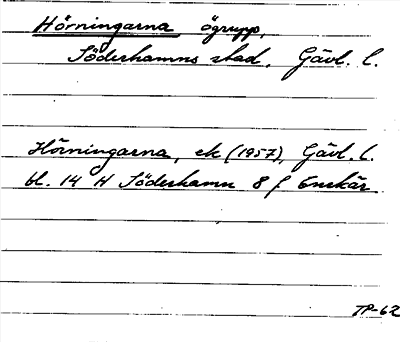 Hörningarna ögrupp,
Söderhamns stad, Gävl. l.
Hörningarna, ek (1957), Gävl. l.
bl. 14 H Söderhamn 8 f Enskär
TP-62